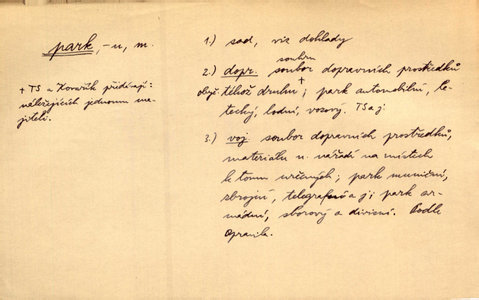 park, -u, m.
+ TS a Kovařík přidávají:
náležejících jednomu ma-
jiteli.
1.) sad, viz doklady
souhrn
2.) dopr. soubor dopravních prostředků
obyč. téhož druhu +; park automobilní, le-
tecký, lodní, vozový. TS aj
3.) voj. soubor dopravních prostředků,
materialu n. nářadí na místech
k tomu určených; park muniční,
zbrojní, telegrafní a j; park ar-
mádní, sborový a divisní. Podle